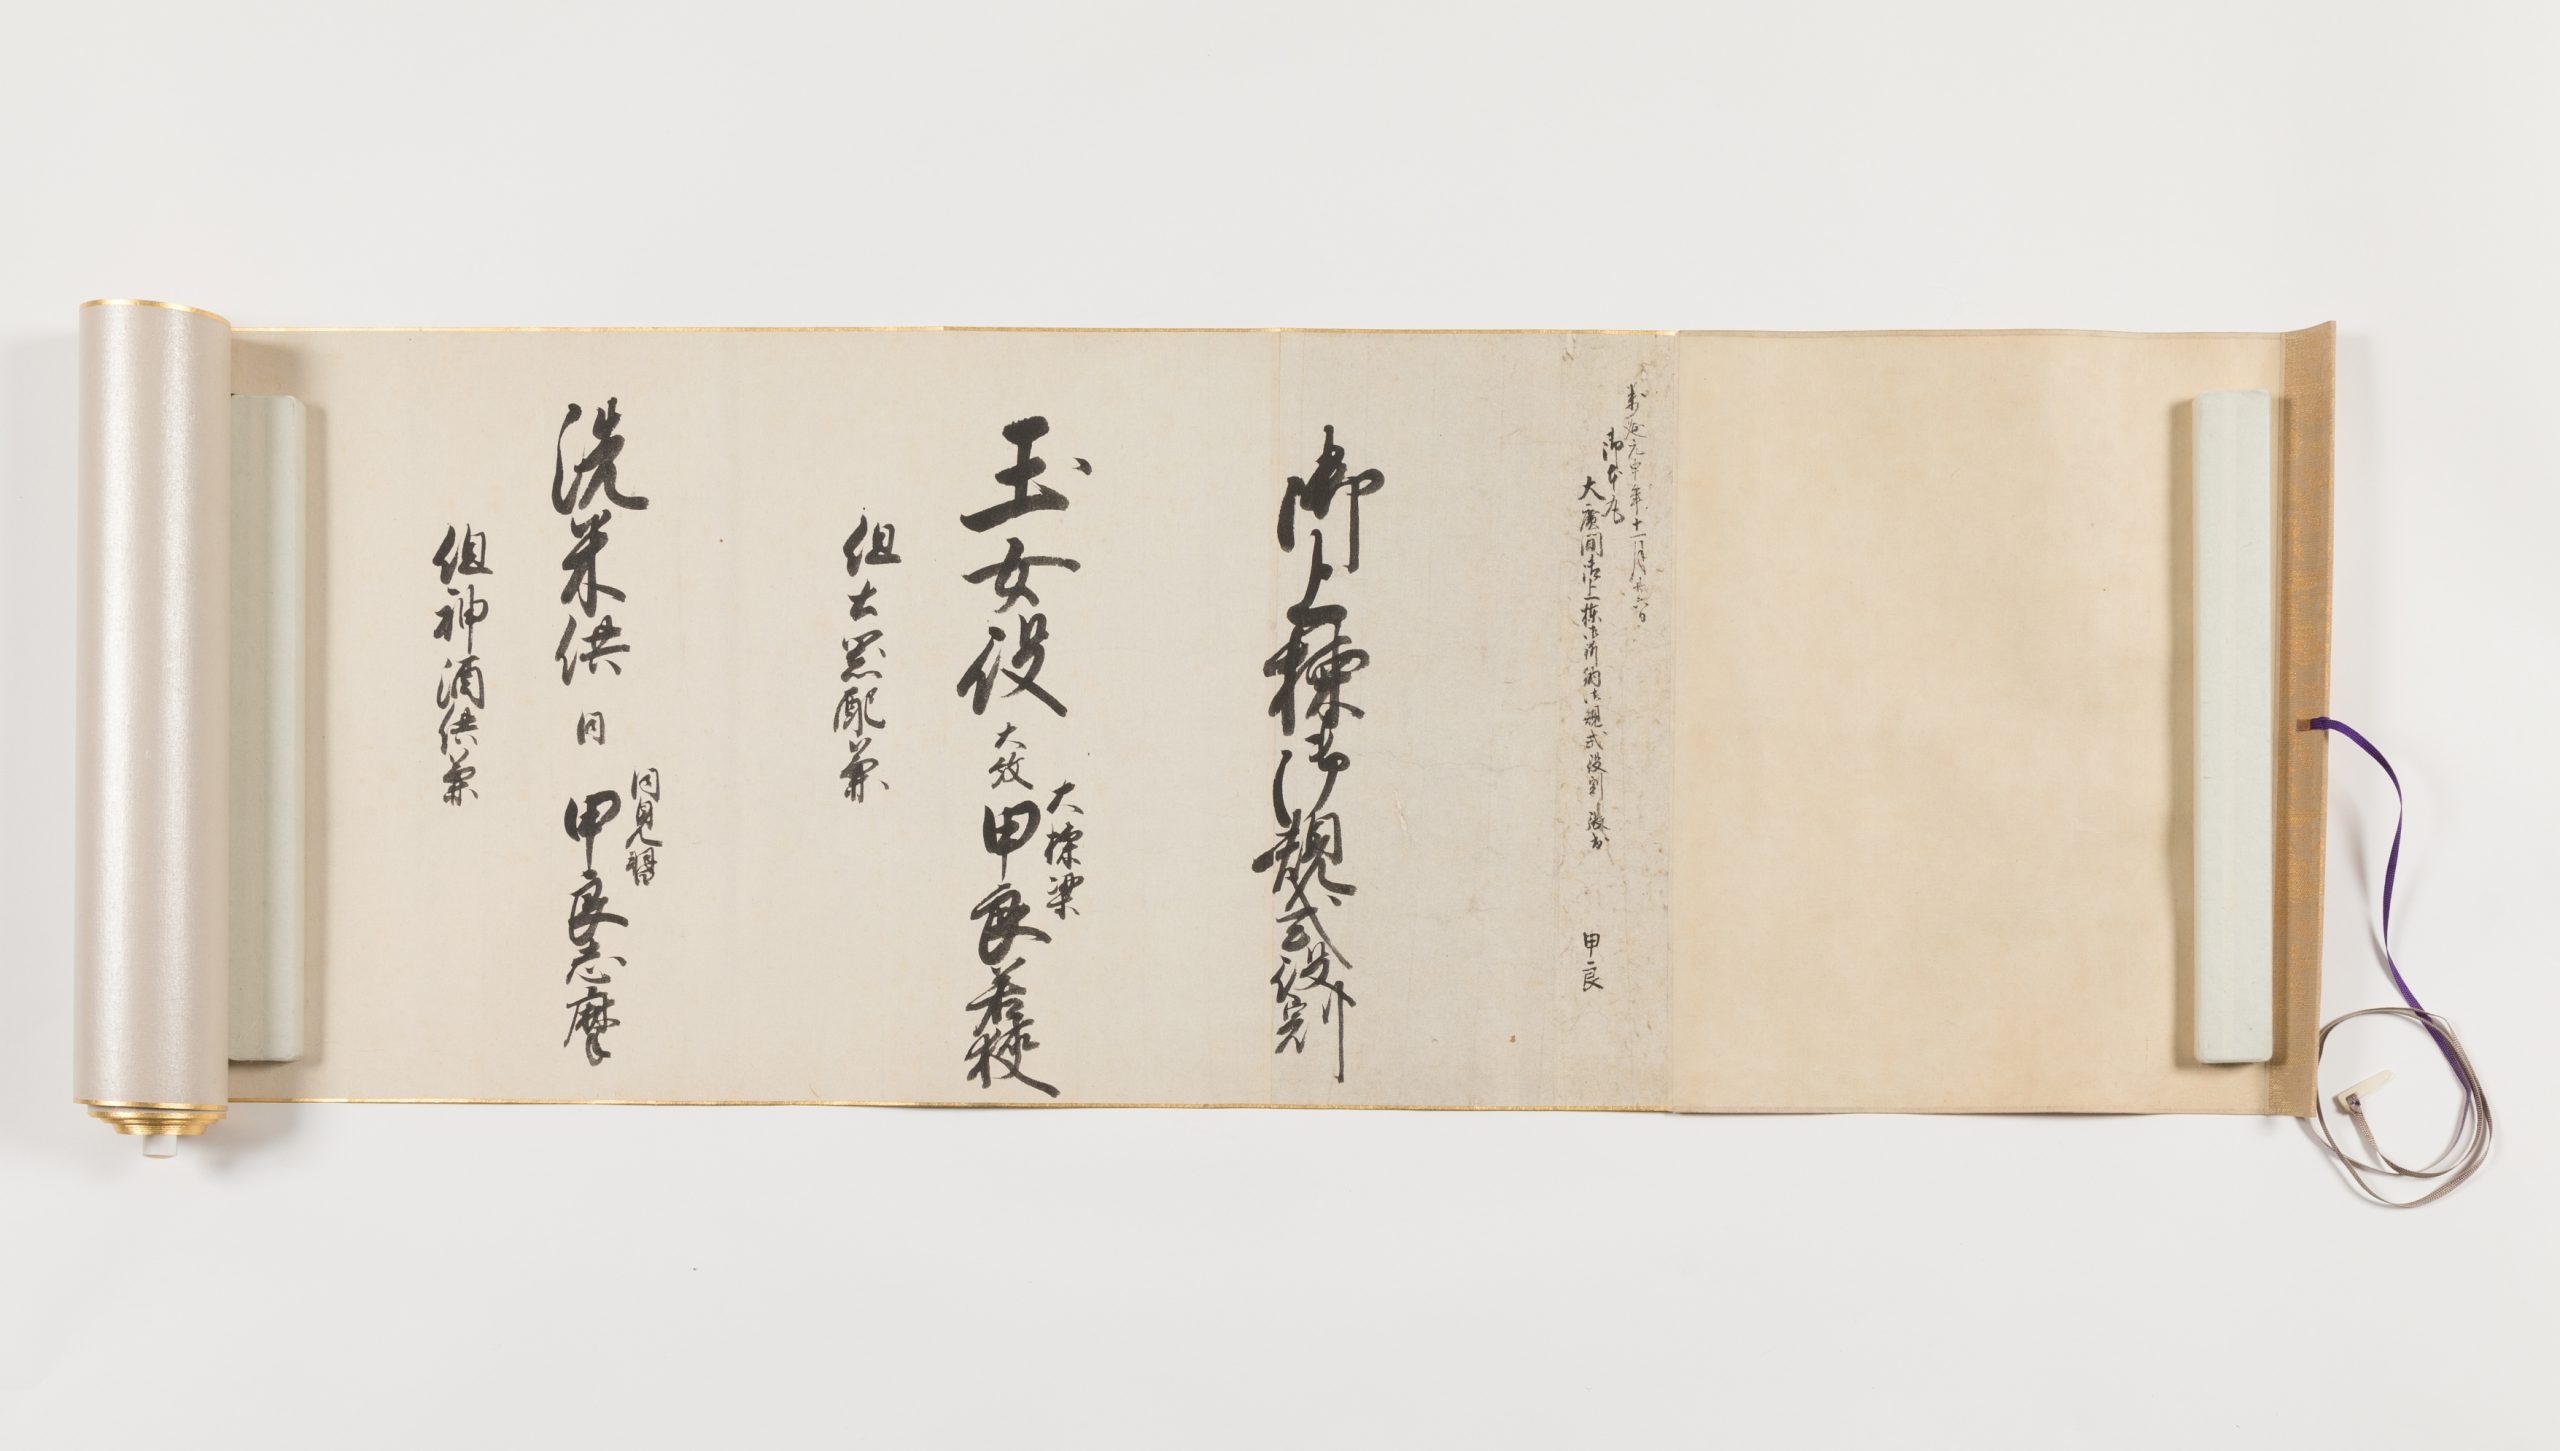 萬延元申年十一月廿六日
御本丸
大廣間御上棟御祈納御規式役割 扣書 甲良
御上棟御規式役割
玉女役 大紋 大棟梁 甲良若狭
但土器配兼
洗米供 同 同見習 甲良志摩
但神酒供兼